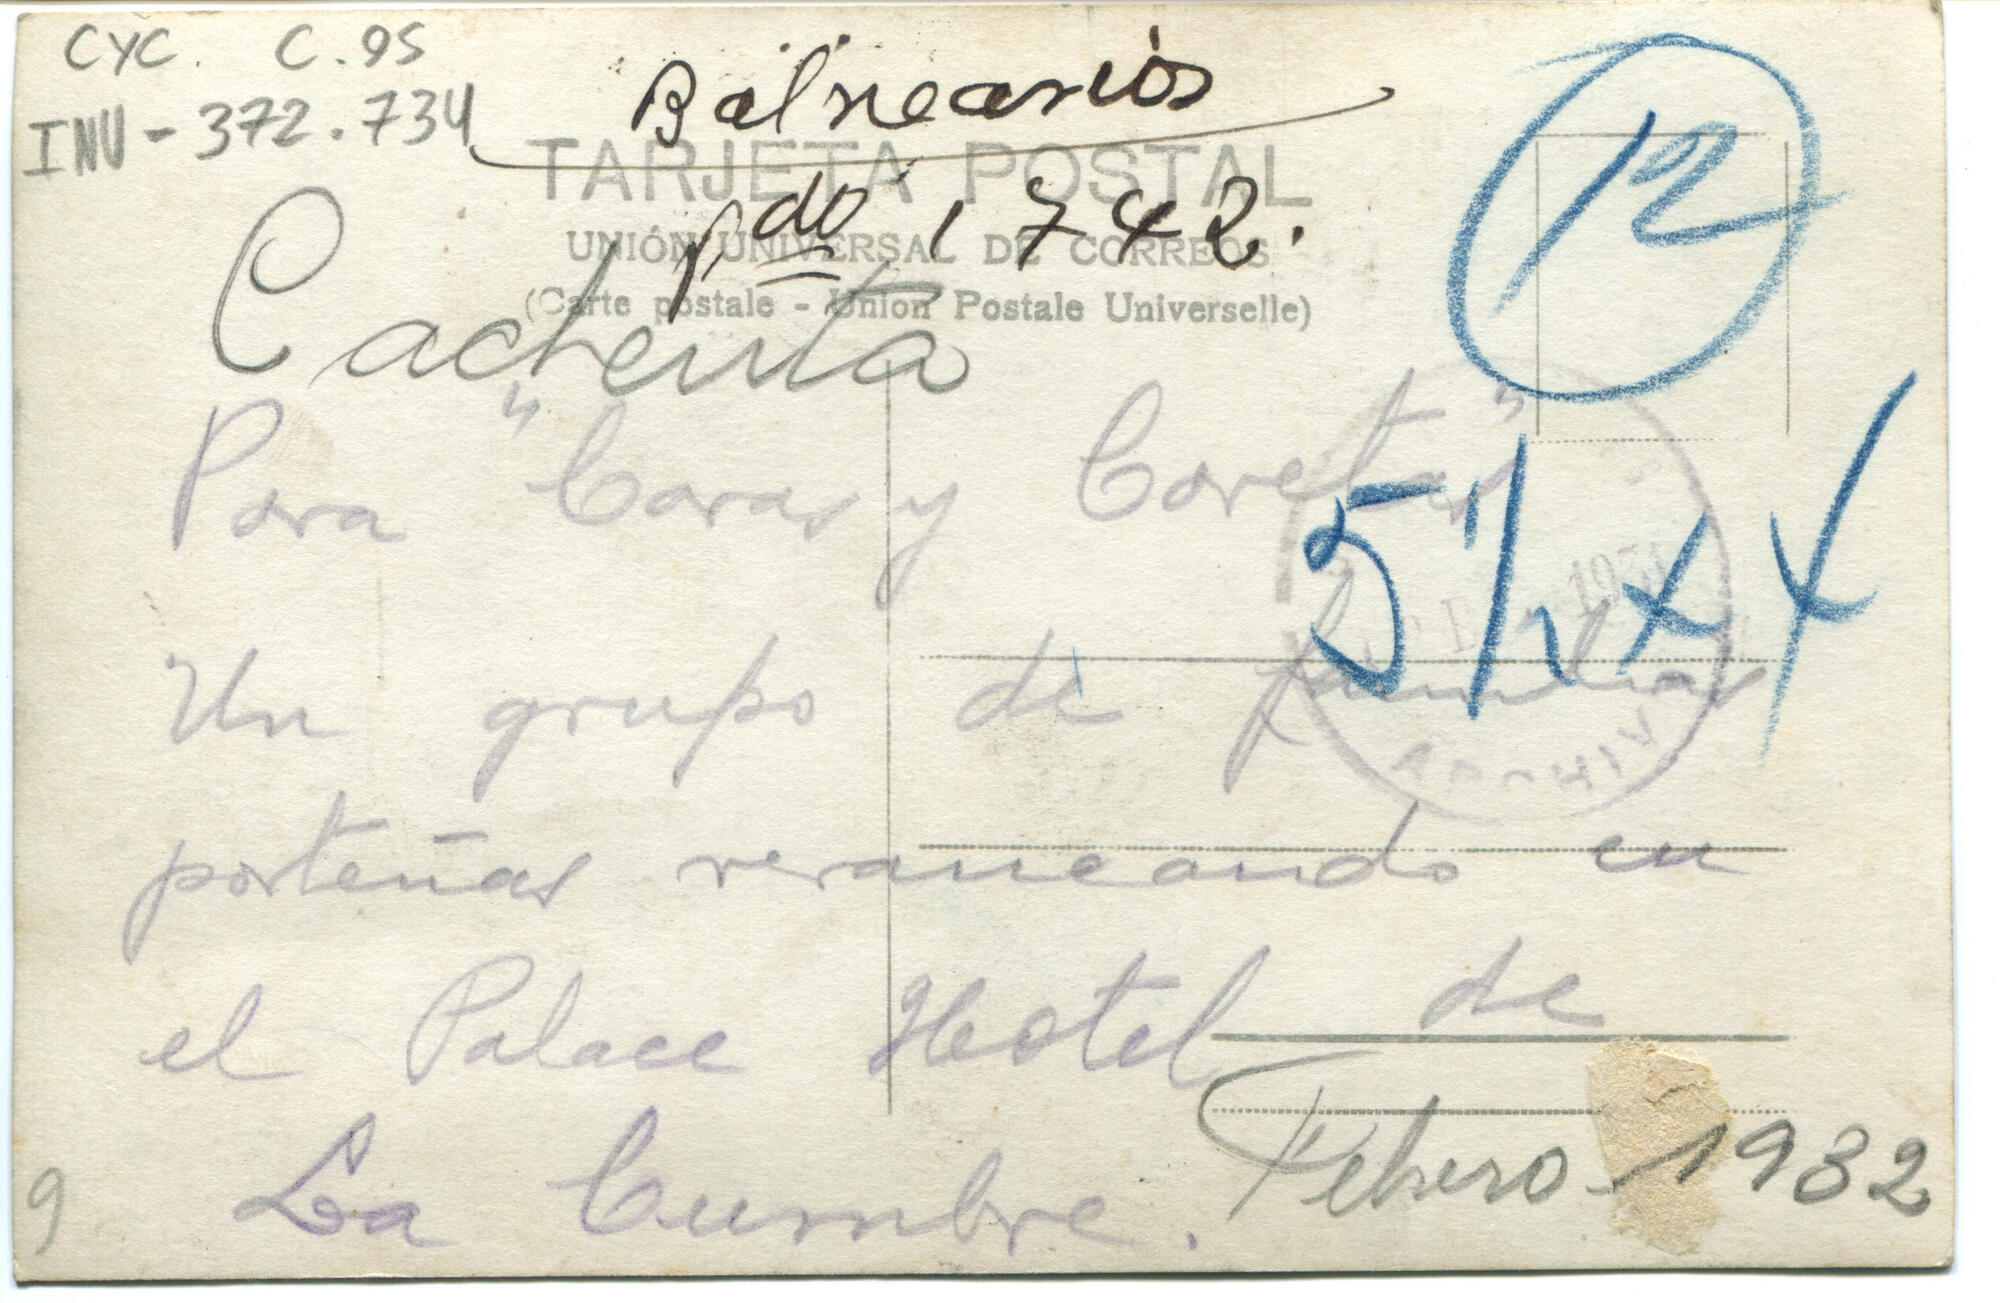 CYC. C.95
INV-372.734
Balnearios
TARJETA POSTAL
pdo 1742.
UNIÓN UNIVERSAL DE CORREOS
(Carte postale - Union Postale Universelle)
Cacheuta
12
Para "Caras y Caretas"
1931
Un grupo de familias
ARCHIV
porteñas veraneando en
el Palace Hotel de
La Cumbre.
Febrero - 1932
9